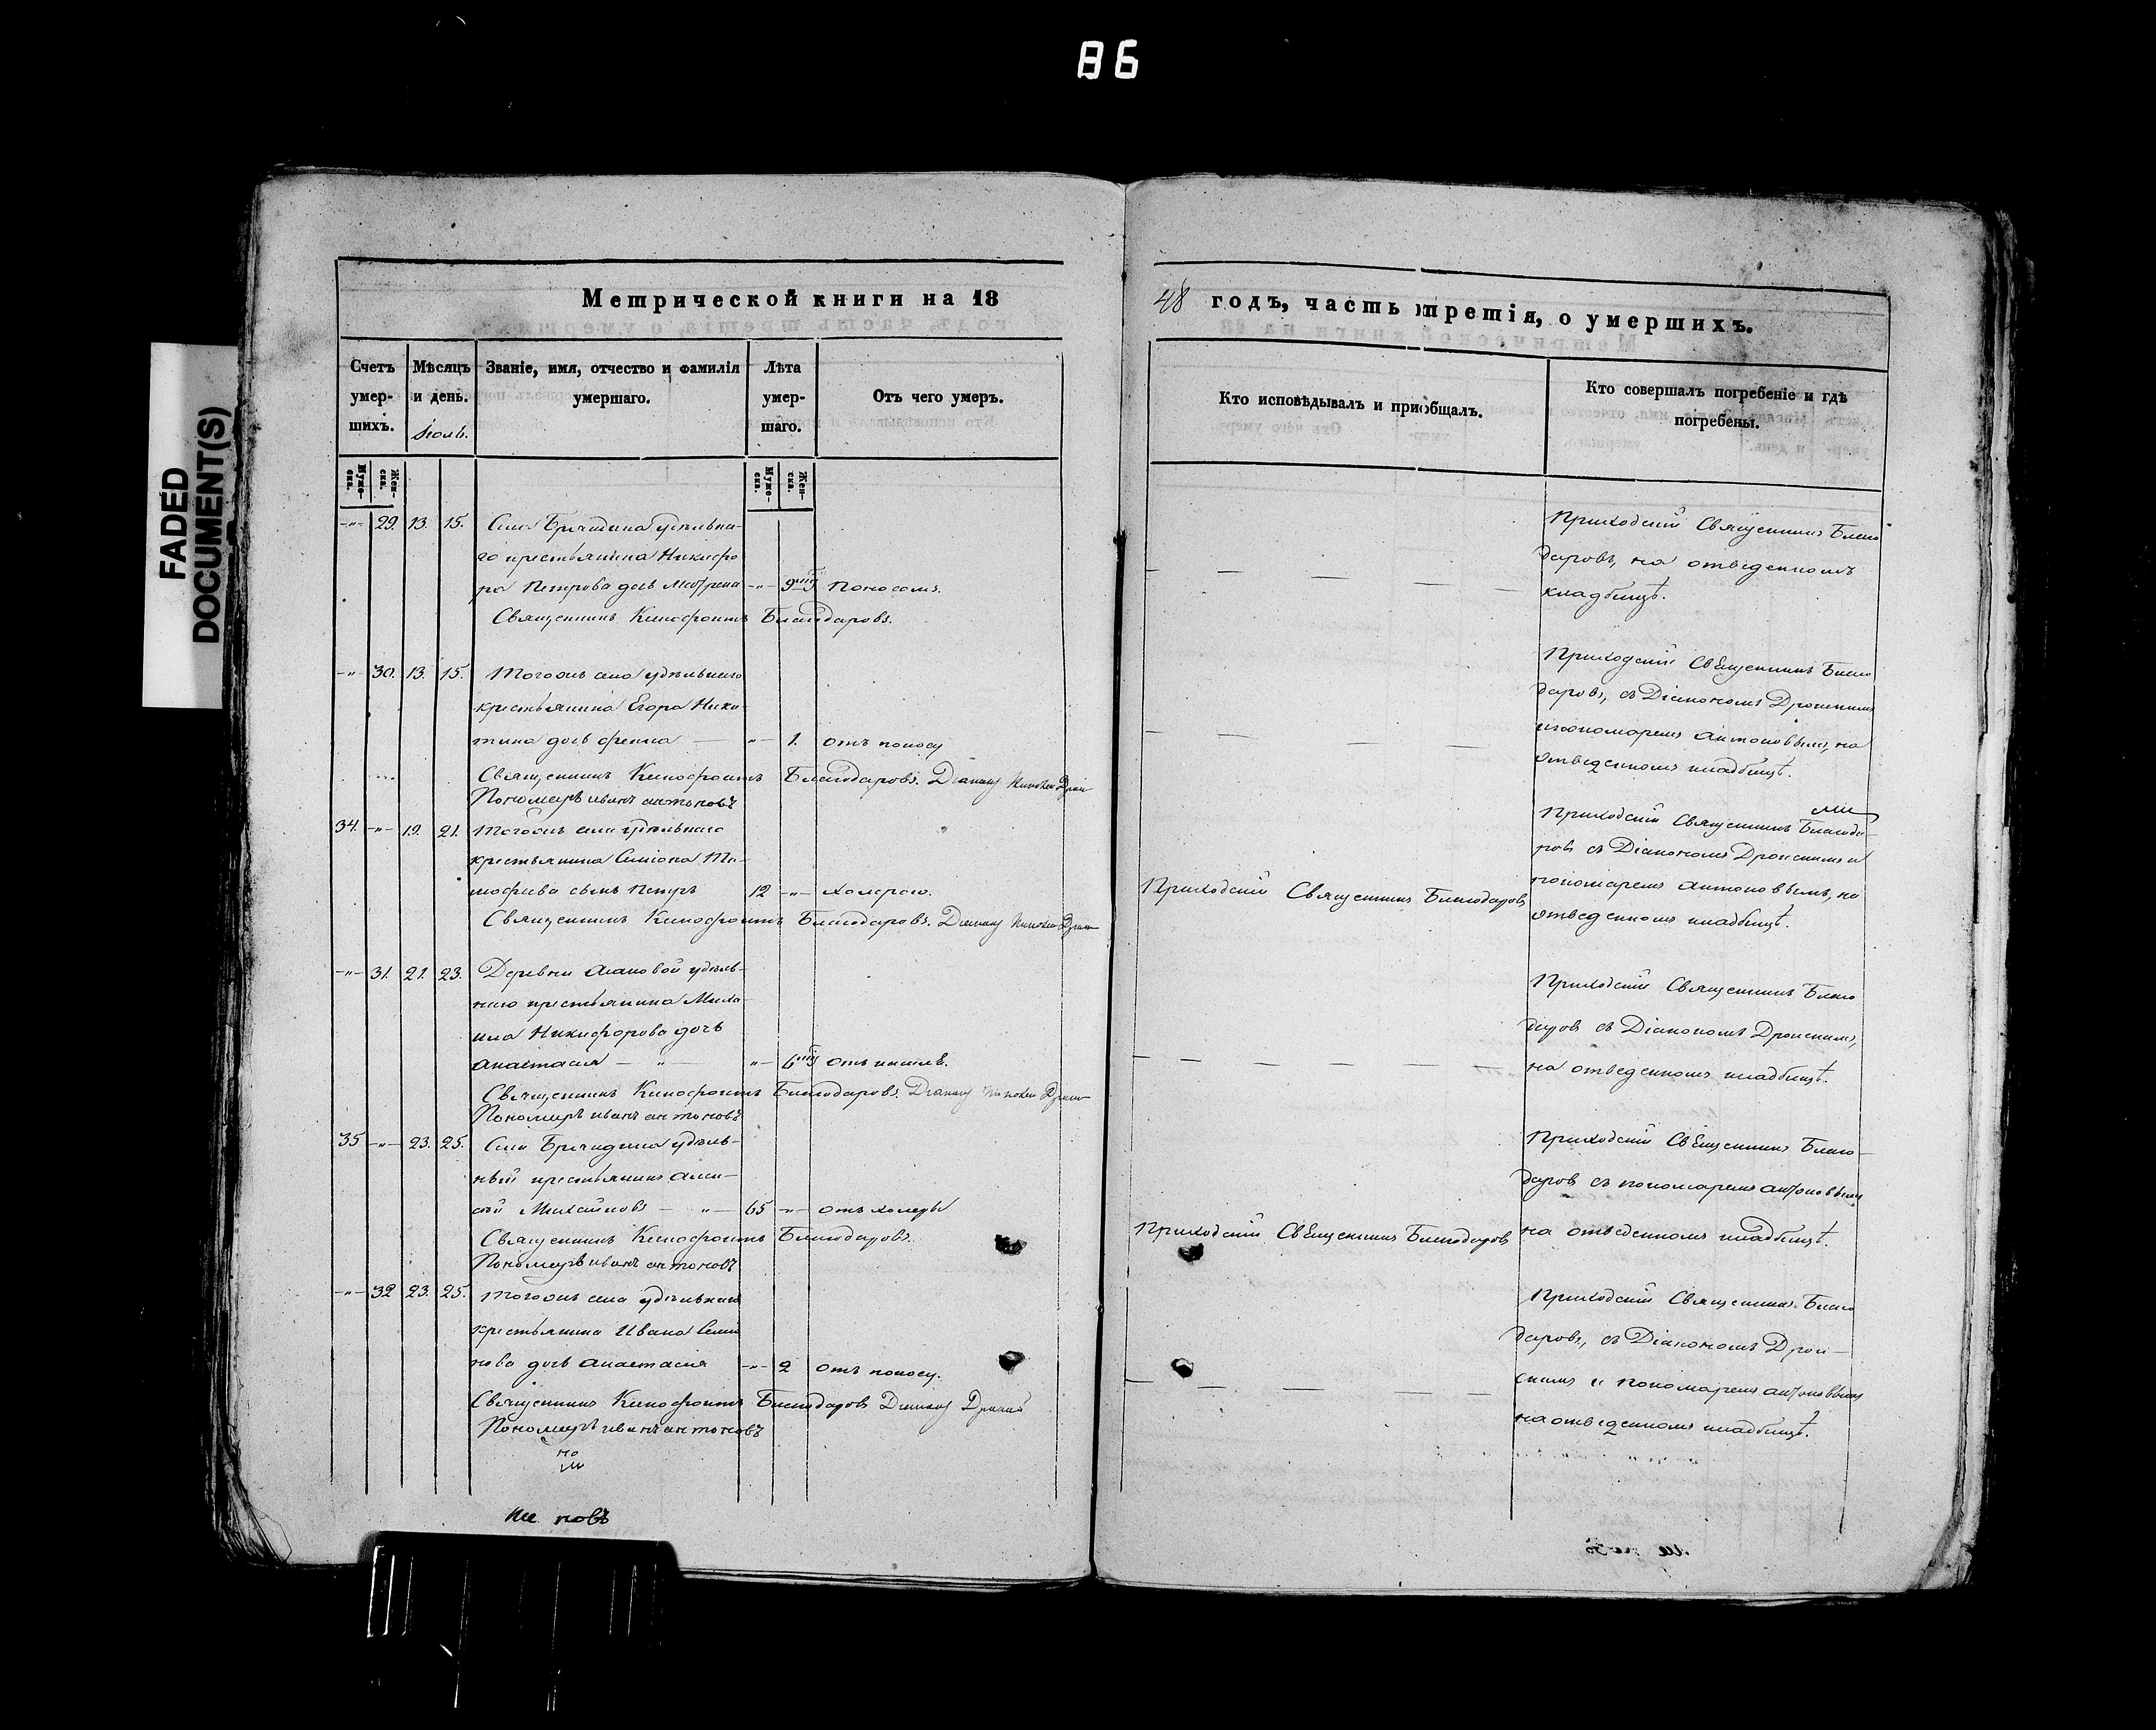 86
FADED
DOCUMENT(S)
Метрической книги на 18
48 годъ, часть третія, о умершихъ.
Счетъ умер-шихъ.
Мѣсяцъ и день.
Званіе, имя, отчество и фамилія умершаго.
Лѣта умер-шаго.
Отъ чего умеръ.
Кто исповѣдывалъ и приобщалъ.
Кто совершалъ погребеніе и гдѣ погребены.
Іюль.
Муже-ска.
Жен-ска.
Муже-ска.
Жен-ска.
-"- 29. 13. 15. Села удѣльна-
го крестьянина Никифо
ра Петрова дочь Матрена -"- 9 поносомъ.
Священникъ Ксенофонтъ Благодаровъ.
Приходскій Священникъ Благо
даровъ, на отведенномъ
кладбищѣ.
-"- 30. 13. 15. Тогожъ села удѣльнаго
крестьянина Егора Ники-
тина дочь -"- 1. отъ поносу
Священникъ Ксенофонтъ Благодаровъ. Діаконъ
Пономарь иванъ антоновъ
Приходскій Священникъ Благо
даровъ, съ Діакономъ
и пономаремъ антоновымъ, на
отведенномъ кладбищѣ.
34. -"- 19. 21. Тогожъ села удѣльнаго
крестьянина Симіона Ти-
мофѣева сынъ Петръ 12 -"- холерою.
Священникъ Ксенофонтъ Благодаровъ. Діаконъ
Приходскій Священникъ Благодаровъ
Приходскій Священникъ Благода-
ровъ съ Діакономъ и
пономаремъ антоновымъ, на
отведенномъ кладбищѣ.
-"- 31. 21. 23. Деревни удѣль-
наго крестьянина Миха-
ила Никифорова дочь
анастасія -"- -"- 6 отъ
Священникъ Ксенофонтъ Благодаровъ. Діаконъ
Пономарь иванъ антоновъ
Приходскій Священникъ Благо
даровъ съ Діакономъ
на отведенномъ кладбищѣ.
35 -"- 23. 25. Села удѣль-
ный крестьянинъ Алек-
сѣй Михайловъ -"- 65 -"- отъ холеры
Священникъ Ксенофонтъ Благодаровъ.
Пономарь иванъ антоновъ
Приходскій Священникъ Благодаровъ
Приходскій Священникъ Благо-
даровъ съ пономаремъ антоновымъ
на отведенномъ кладбищѣ.
-"- 32 23. 25. Тогожъ села удѣльнаго
крестьянина Ивана Семіо
нова дочь анастасія -"- 2 отъ поносу.
Священникъ Ксенофонтъ Благодаровъ Діаконъ
Пономарь иванъ антоновъ
Приходскій Священникъ Благо
даровъ, съ Діакономъ
и пономаремъ антоновымъ
на отведенномъ кладбищѣ.